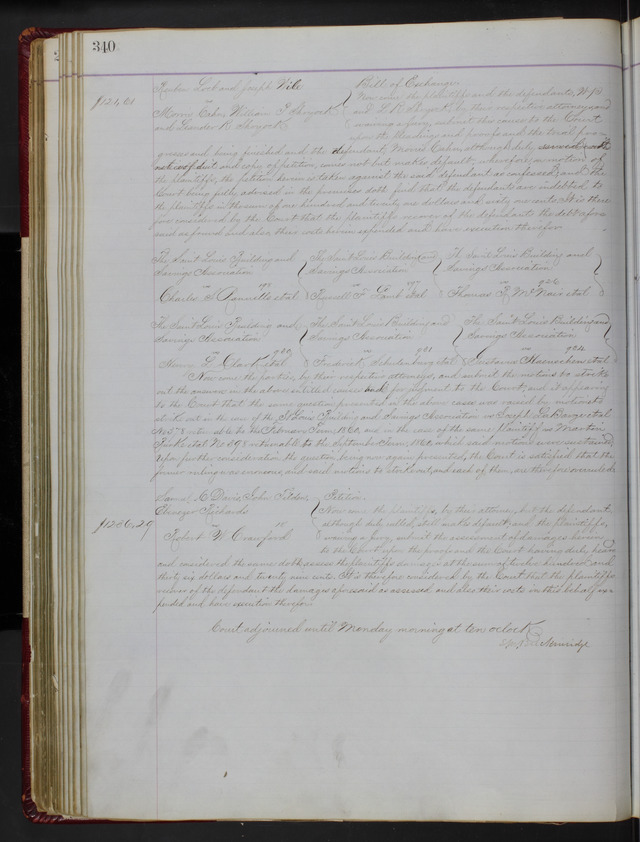 340
Reuben Loeb and Joseph Wile Bill of Exchange
$121,61 vs Now come the plaintiffs and the defendants, W. J.
Morris Cahn, William T Shryock and L. R. Shryock, by their respective attorneys, and
and Leander R. Shryock waiving a jury, submit this cause to the Court
upon the pleadings and proofs and the trial pro=
gresses and being finished and the defendant Morris Cahn, although duly served with
notice of suit and copy of petition, comes not but makes default, wherefore, on motion of
the plaintiffs, the petition herein is taken against the said defendant as confessed, and the
Court being fully advised in the premises doth find that the defendants are indebted to
the plaintiffs in the sum of one hundred and twenty one dollars and sixty one cents. It is there
fore considered by the Court that the plaintiffs recover of the defendants the debt afore
said as found and also their costs herein expended and have execution therefor.
The Saint Louis Building and The Saint Louis Building and The Saint Louis Building and
Savings Association Savings Association Savings Association
vs vs vs 926
Charles S Rannells et al Farut et al Thomas McNair et al
The Saint Louis Building and The Saint Louis Building and The Saint Louis Building and
Savings Association Savings Association Savings Association
vs 920 vs 921 vs 924
Henry L Clark et al Frederick Schulenburg et al et al
Now come the parties, by their respective attorneys, and submit the motions to strike
out the answers in the above entitled causes to the Court; and it appearing
to the Court that the same question presented in the above cases was raised by motions to
strike out in the case of the St Louis Building and Savings Association vs Joseph La Barge et al
No 578 returnable to the February Term 1860, and in the case of the same Plaintiff vs Martin
et al No 598 returnable to the September Term, 1860, which said motions were sustained,
Upon further consideration the question being now again presented, the Court is satisfied that the
former ruling was erroneous, and said motions to strike out, and each of them, are therefore overruled.
Samuel C Davis, John Tilden, Petition
Ebenezer Richards Now come the plaintiffs, by their attorney, but the defendant
$1236,29 vs 18 although duly called, still makes default, and the Plaintiffs,
Robert W. Crawford waiving a jury, submit the assessment of damages herein
to the Court upon the proofs and the Court having duly heard
and considered the same doth assess the plaintiffs damages at the sum of twelve hundred and
thirty six dollars and twenty nine cents. It is therefore considered by the Court that the plaintiffs
recover of the defendant the damages aforesaid as assessed and also their costs in this behalf ex=
pended and have execution therefor.
Court adjourned until Monday morning at ten o'clock